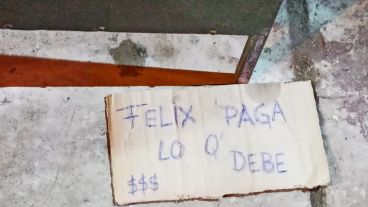 FELIX PAGA
LO Q' DEBE
$$$